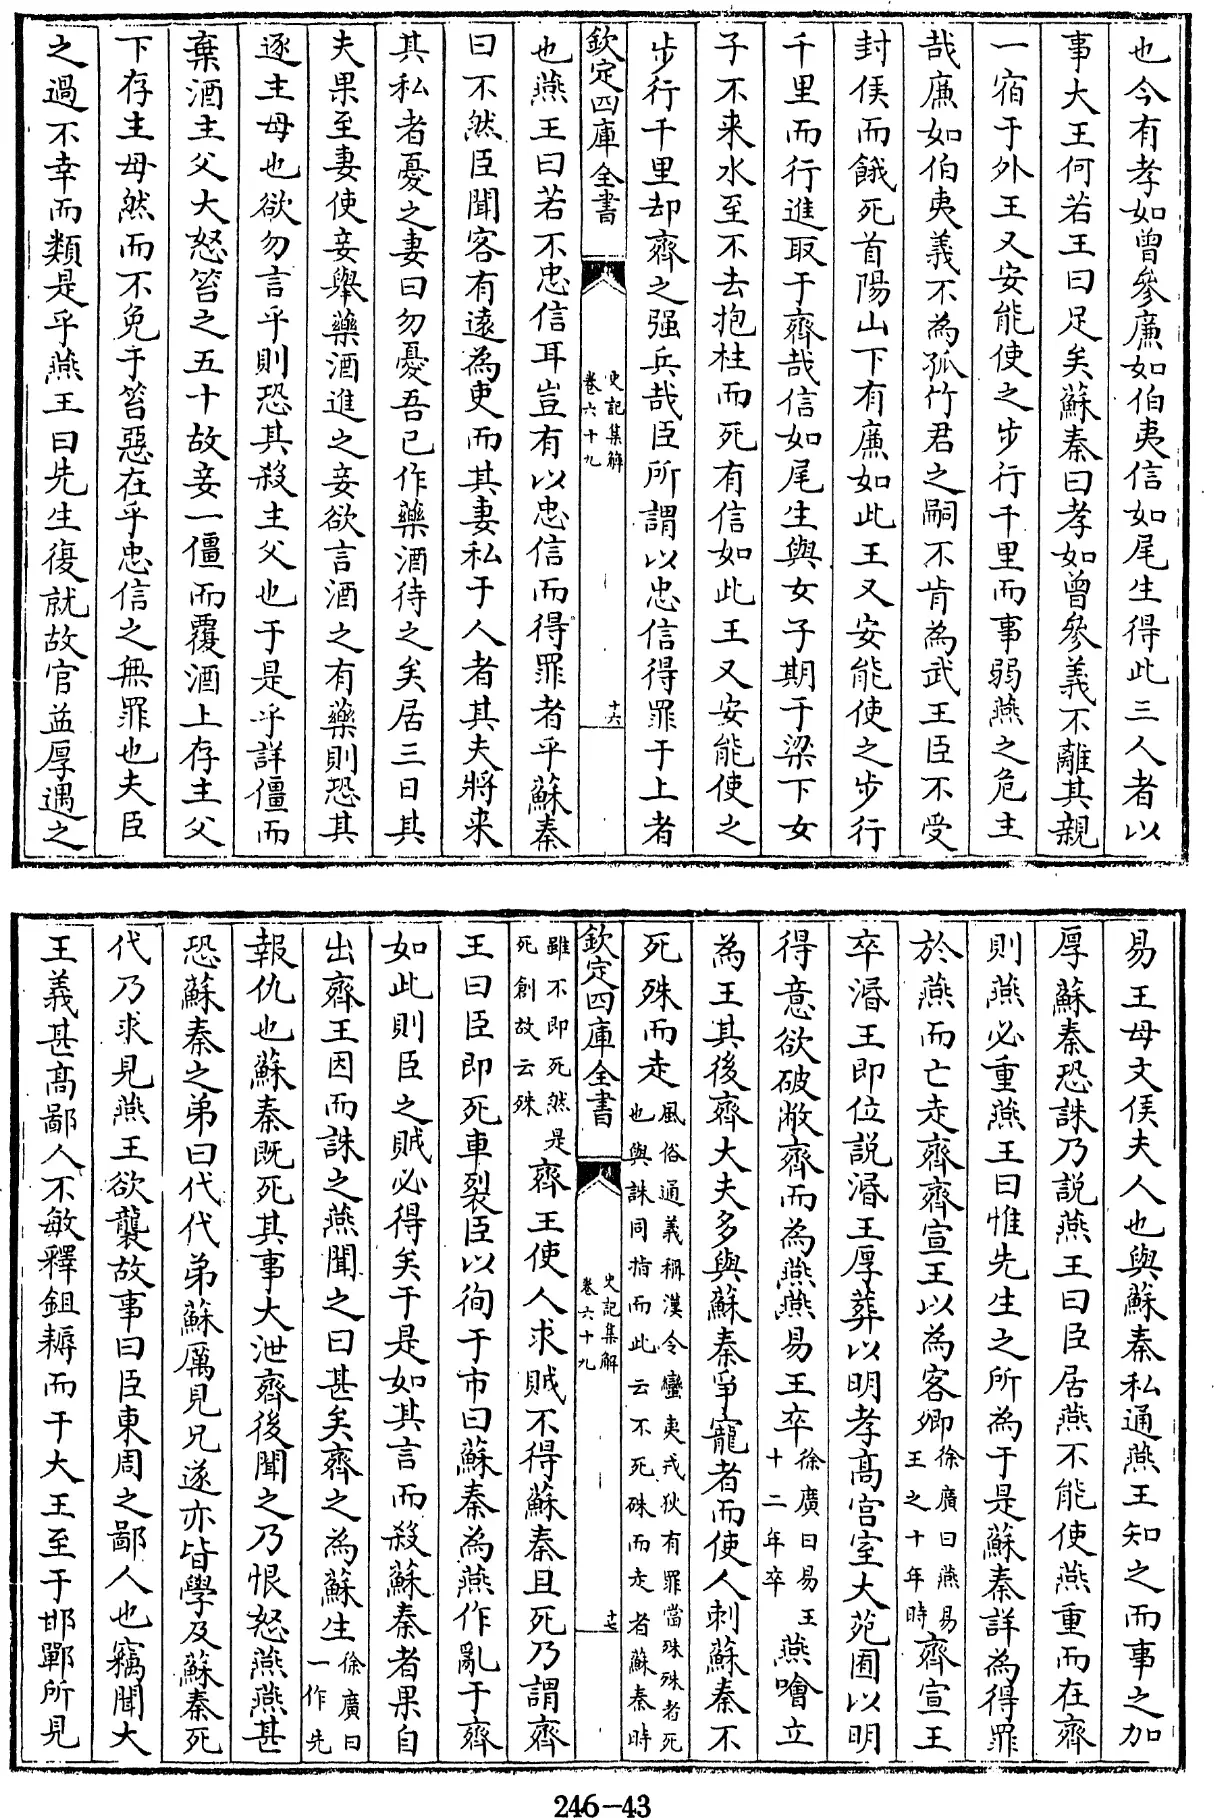 也今有孝如曾參廉如伯夷信如尾生得此三人者以
事大王何若王曰足矣蘇秦曰孝如曾參義不離其親
一宿于外王又安能使之步行千里而事弱燕之危主
哉廉如伯夷義不為孤竹君之嗣不肯為武王臣不受
封侯而餓死首陽山下有廉如此王又安能使之步行
千里而行進取于齊哉信如尾生與女子期于梁下女
子不来水至不去抱柱而死有信如此王又安能使之
步行千里却齊之强兵哉臣所謂以忠信得罪于上者
欽定四庫全書
史記集解
卷六十九
十六
也燕王曰若不忠信耳豈有以忠信而得罪者乎蘇秦
曰不然臣聞客有遠為吏而其妻私于人者其夫將来
其私者憂之妻曰勿憂吾已作藥酒待之矣居三日其
夫果至妻使妾舉藥酒進之妾欲言酒之有藥則恐其
逐主母也欲勿言乎則恐其殺主父也于是乎詳僵而
棄酒主父大怒笞之五十故妾一僵而覆酒上存主父
下存主母然而不免于笞惡在乎忠信之無罪也夫臣
之過不幸而類是乎燕王曰先生復就故官益厚遇之
易王母文侯夫人也與蘇秦私通燕王知之而事之加
厚蘇秦恐誅乃説燕王曰臣居燕不能使燕重而在齊
則燕必重燕王曰惟先生之所為于是蘇秦詳為得罪
於燕而亡走齊齊宣王以為客卿徐廣曰燕易王之十年時齊宣王
卒湣王即位説湣王厚葬以明孝髙宫室大苑囿以明
得意欲破敝齊而為燕燕易王卒徐廣曰易王十二年卒燕噲立
為王其後齊大夫多與蘇秦爭寵者而使人刺蘇秦不
死殊而走風俗通義稱漢令蠻夷戎狄有罪當殊殊者死也與誅同指而此云不死殊而走者蘇秦時
欽定四庫全書
史記集解
卷六十九
十七
雖不即死然是死創故云殊齊王使人求賊不得蘇秦且死乃謂齊
王曰臣即死車裂臣以徇于市曰蘇秦為燕作亂于齊
如此則臣之賊必得矣于是如其言而殺蘇秦者果自
出齊王因而誅之燕聞之曰甚矣齊之為蘇生徐廣曰一作先
報仇也蘇秦既死其事大泄齊後聞之乃恨怒燕燕甚
恐蘇秦之弟曰代代弟蘇厲見兄遂亦皆學及蘇秦死
代乃求見燕王欲襲故事曰臣東周之鄙人也竊聞大
王義甚髙鄙人不敏釋鉏耨而干大王至于邯鄲所見
246-43